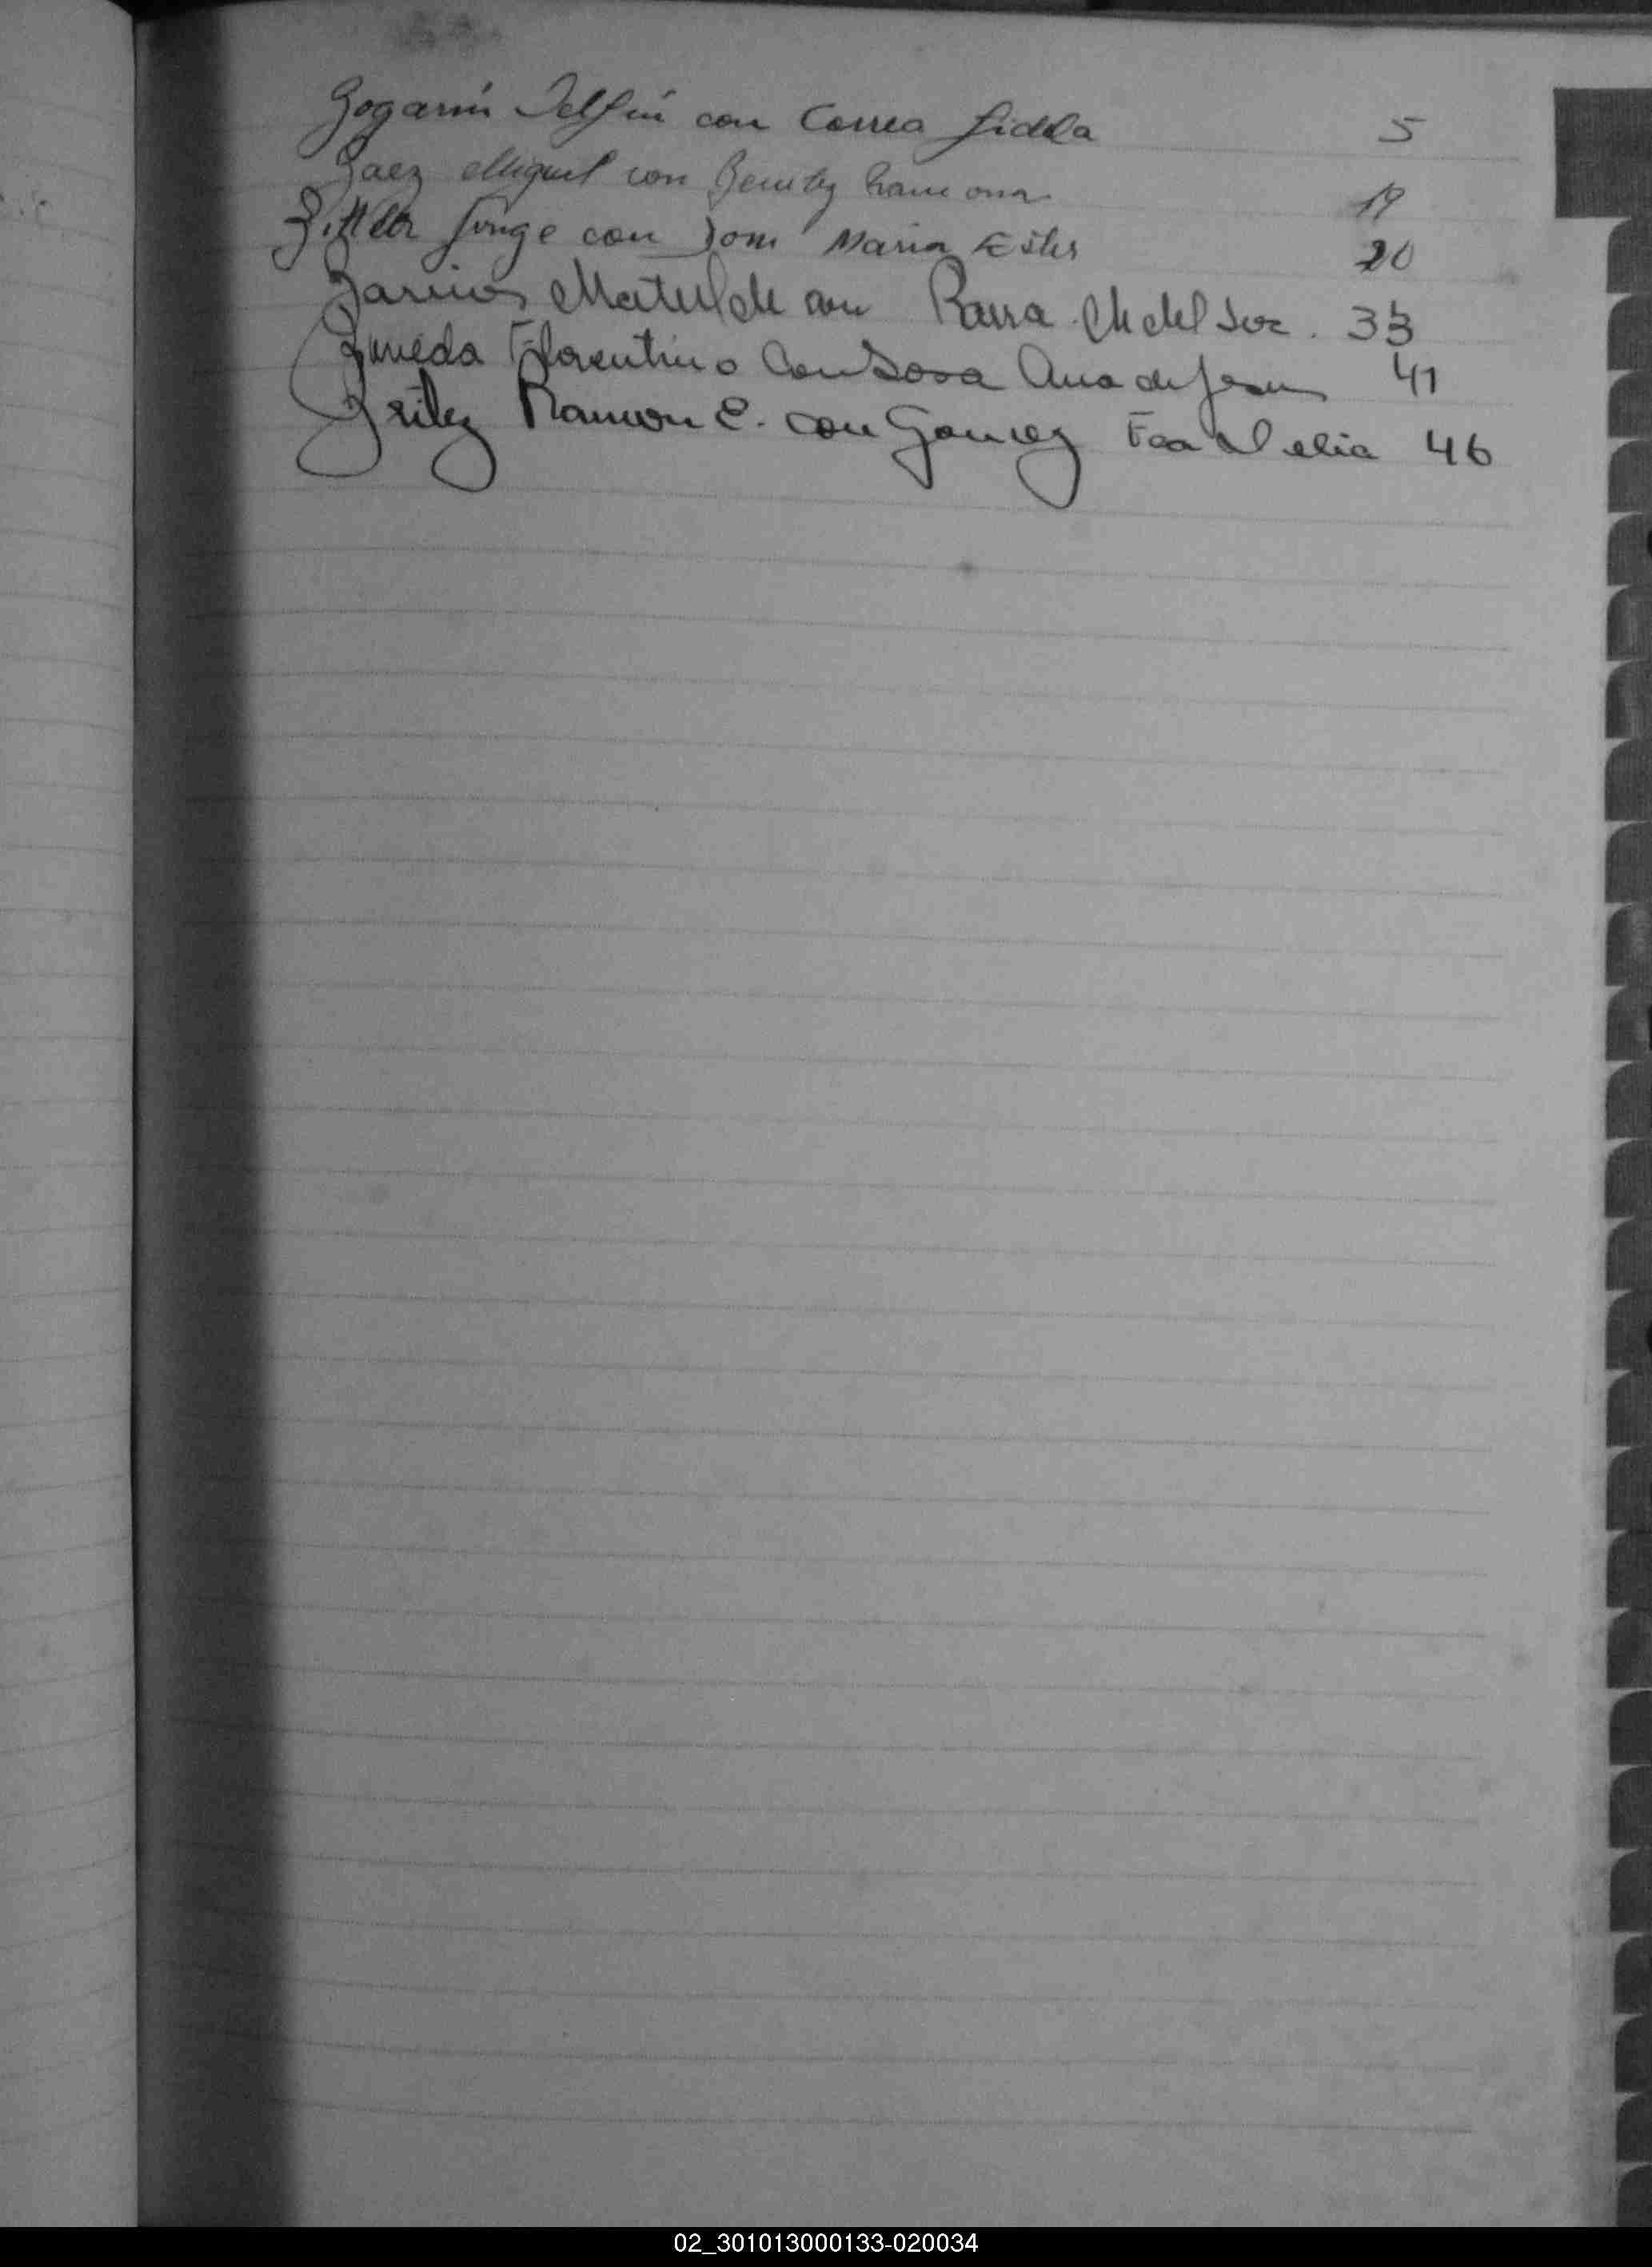 Bogarin Delfin con Correa Fidela 5
Baez Miguel con Benitez Ramona 19
Bittler Jorge con Maria Ester 20
Barrios Matilde con Parra M del Soc. 33
Florentino con Sosa Ana de Jesus 41
Britez Ramon E. con Gomez Fca Delia 46
02_301013000133-020034